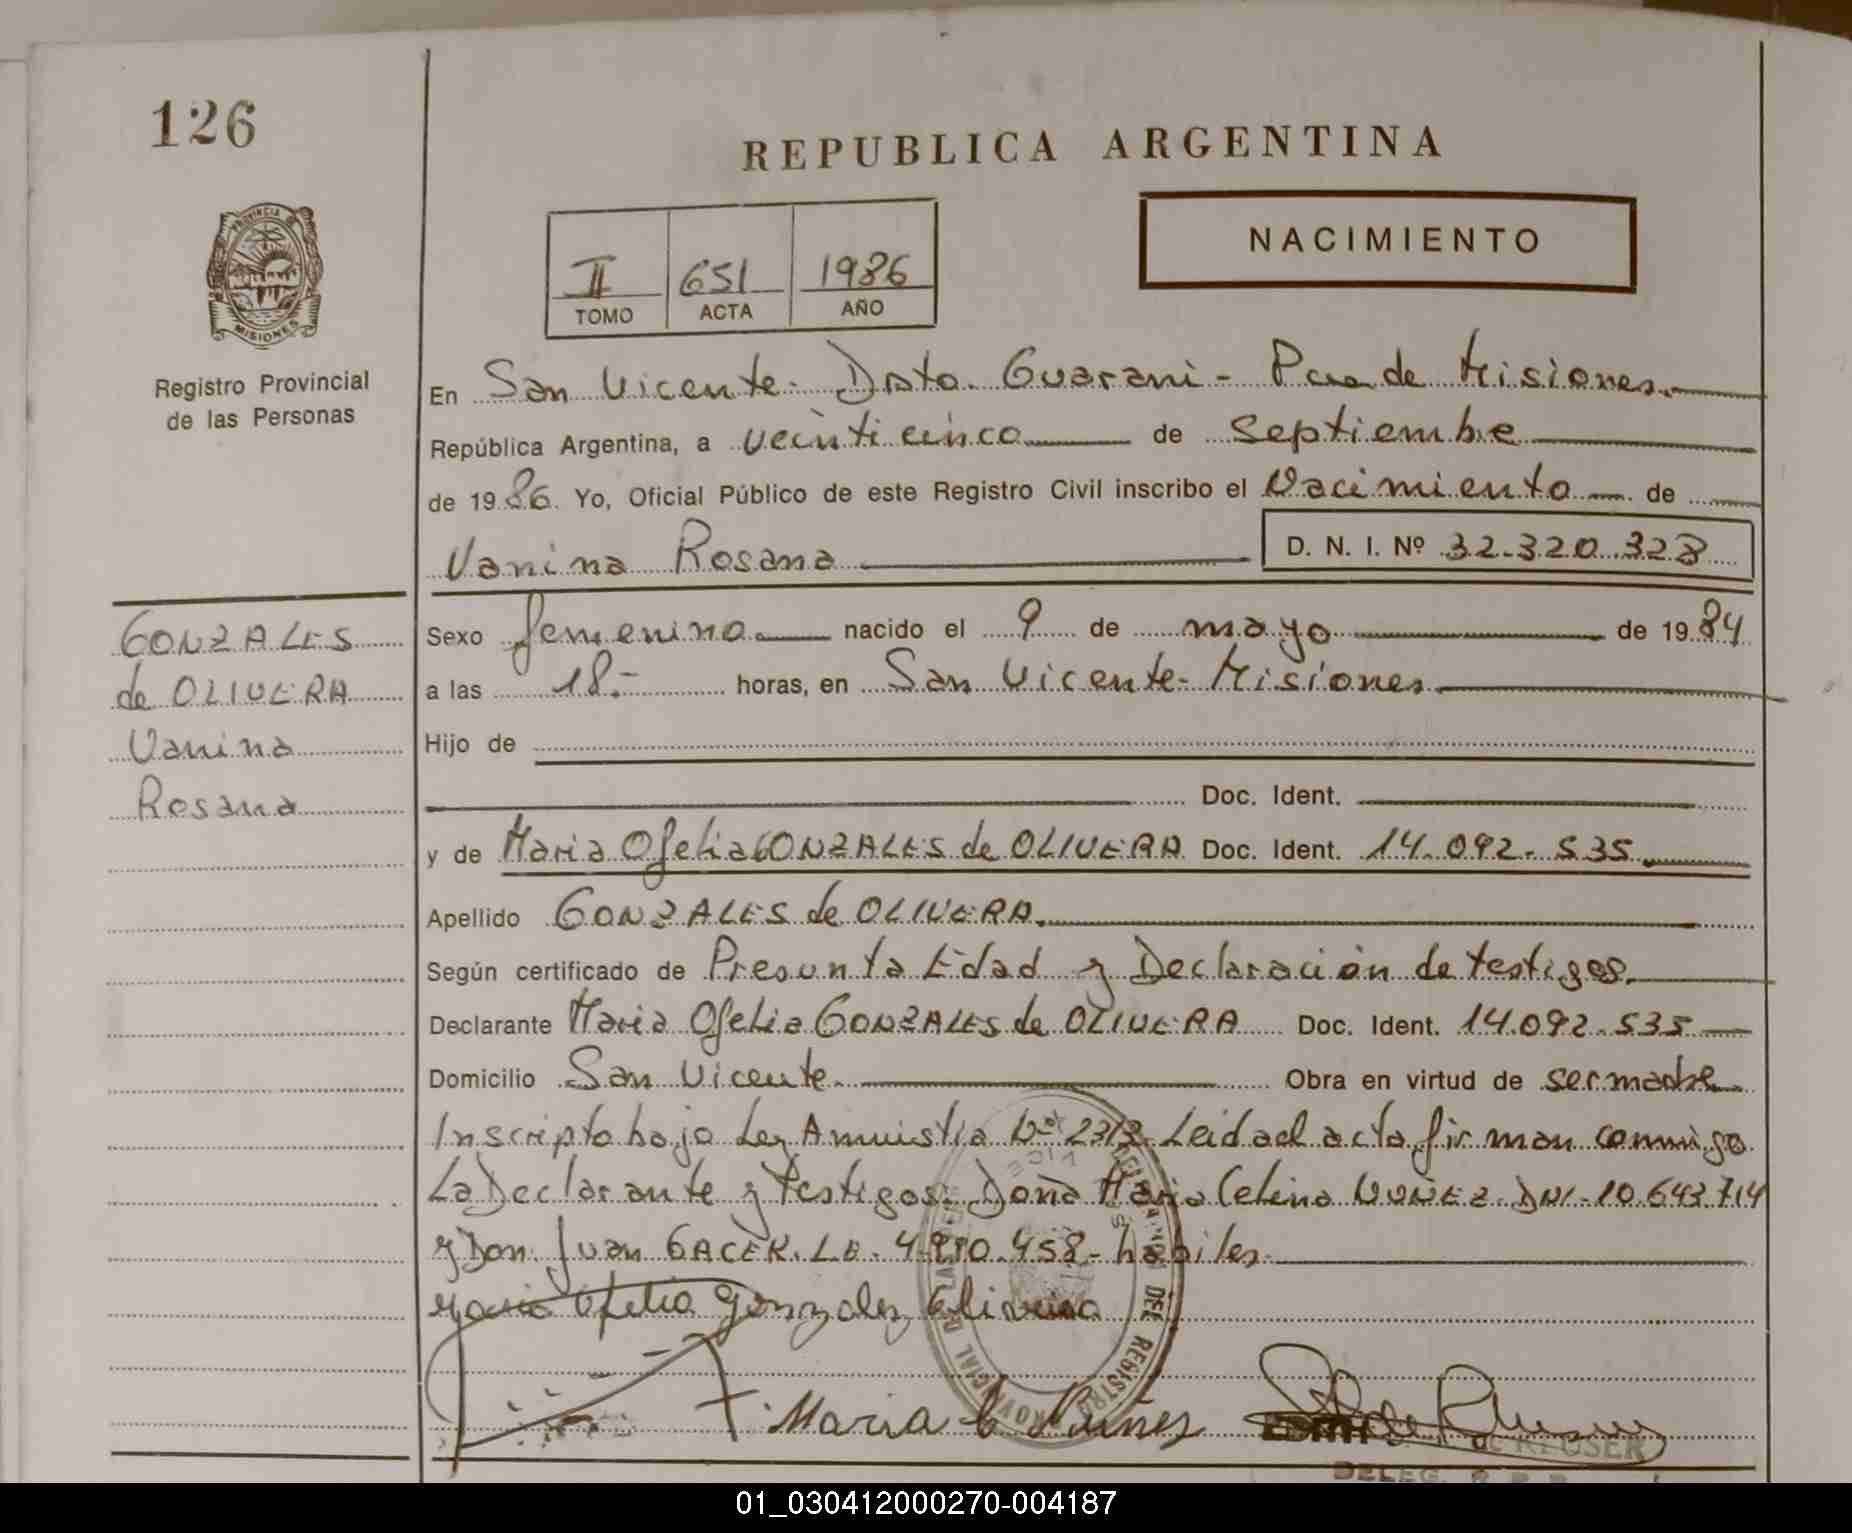 126
REPUBLICA ARGENTINA
PROVINCIA DE
MISIONES
Registro Provincial
de las Personas
II 651 1986
TOMO ACTA AÑO
NACIMIENTO
En San Vicente. Dpto. Guarani - Pcia de Misiones.
República Argentina, a veinticinco de septiembre
de 1986. Yo, Oficial Público de este Registro Civil inscribo el Nacimiento de
Vanina Rosana D. N. I. Nº 32.320.328
GONZALES
de OLIVERA
Vanina
Rosana
Sexo femenino nacido el 9 de mayo de 1984
a las 18.- horas, en San Vicente - Misiones
Hijo de
Doc. Ident.
y de Maria Ofelia GONZALES de OLIVERA Doc. Ident. 14.092.535
Apellido GONZALES de OLIVERA.
Según certificado de Presunta Edad y Declaración de testigos.
Declarante Maria Ofelia GONZALES de OLIVERA Doc. Ident. 14.092.535
Domicilio San Vicente. Obra en virtud de ser madre
Inscripto bajo Ley Amnistia Nº 2313. Leida el acta firman conmigo
La Declarante y Testigos: Doña Maria Celina NUÑEZ. DNI - 10.643.714
y Don Juan GACEK. L.E. 4.910.458 - habiles.
Maria Ofelia Gonzalez Olivera
Maria C Nuñes
EDITH de KLUSER
DELEG.
DEL REGISTRO PROVINCIAL DE LAS
01_030412000270-004187